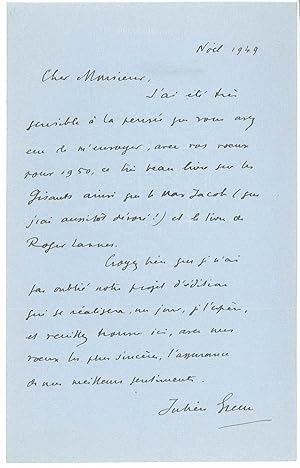 Noël 1949
Cher Monsieur,
J'ai été très
sensible à la pensée que vous avez
eue de m'envoyer, avec vos voeux
pour 1950, ce très beau livre sur les
Gisants ainsi que le Max Jacob (que
j'ai aussitôt dévoré !) et le livre de
Roger Lannes.
Croyez bien que je n'ai
pas oublié notre projet d'édition
qui se réalisera, un jour, je l'espère,
et veuillez trouver ici, avec mes
voeux les plus sincères, l'assurance
de mes meilleurs sentiments.
Julien Green